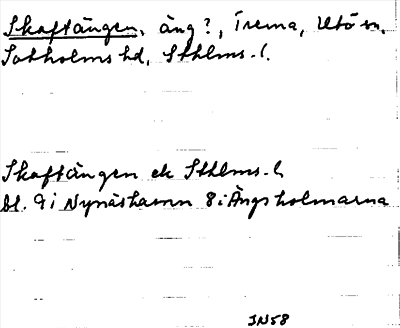 Skaftängen, äng?, Trema, Utö sn,
Sotholms hd, Sthlms l.
Skaftängen ek Sthlms l
bl. 9i Nynäshamn 8i Ängsholmarna
JN58